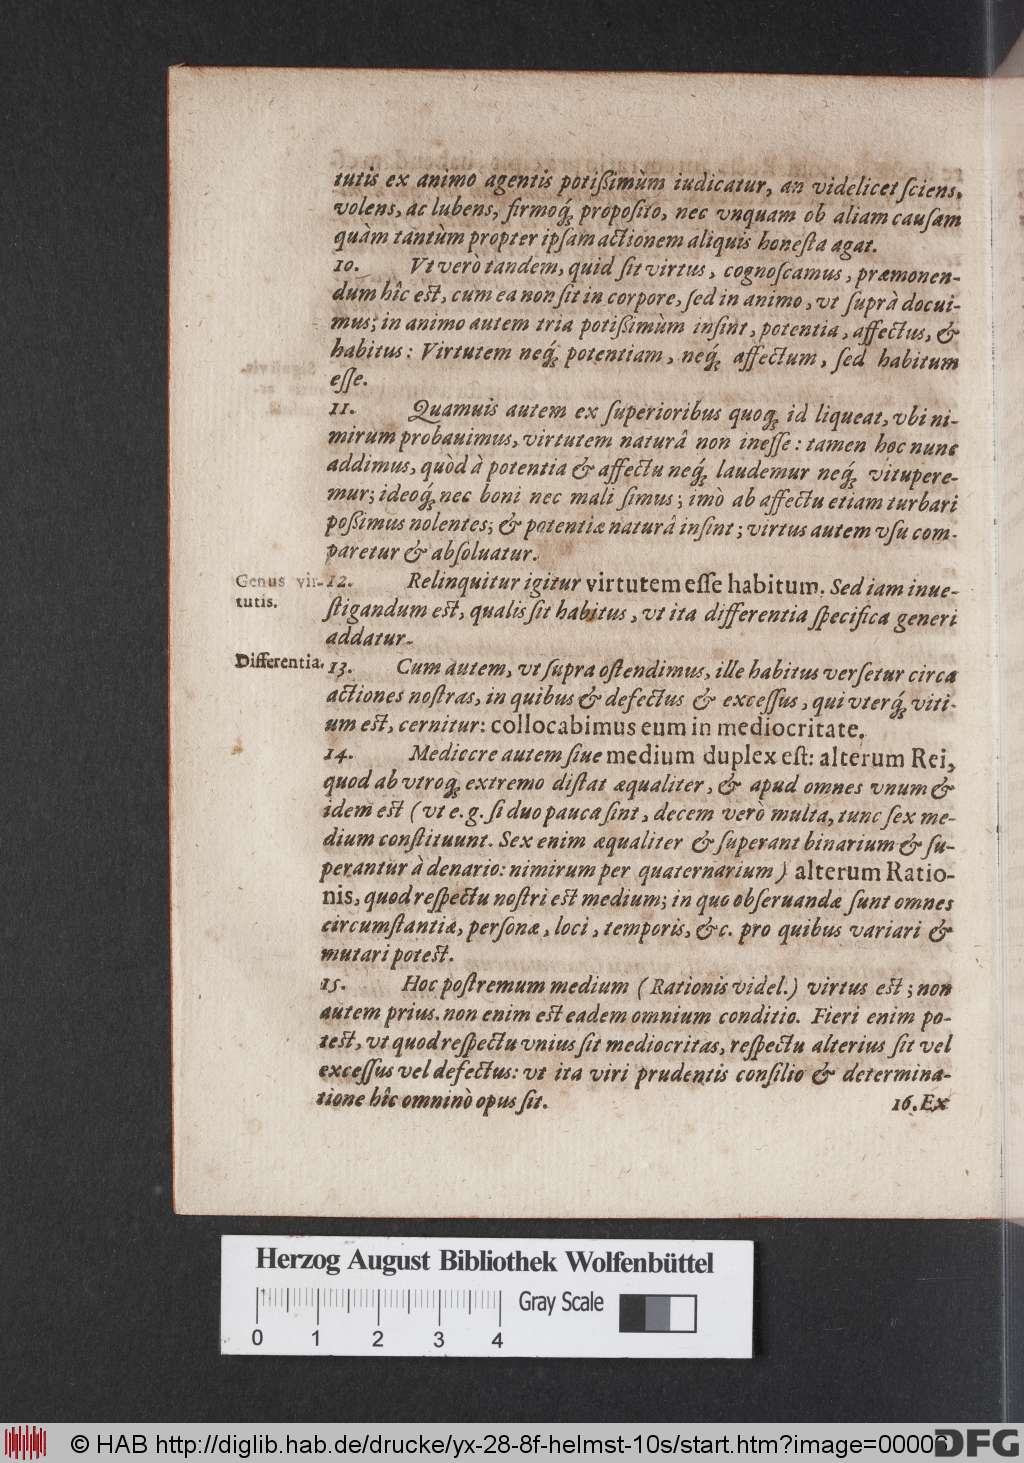 tutis ex animo agentis potiſſimùm iudicatur, an videlicet ſciens,
volens, ac lubens, firmoq́; propoſito, nec vnquam ob aliam cauſam
quàm tantùm propter ipſam actionem aliquis honeſta agat.
10. Vt verò tandem, quid ſit virtus, cognoſcamus, præmonen-
dum hîc eſt, cum ea non ſit in corpore, ſed in animo, vt ſuprà docui-
mus; in animo autem tria potiſſimùm inſint, potentia, affectus, &
habitus: Virtutem neq́; potentiam, neq́; affectum, ſed habitum
eſſe.
11. Quamuis autem ex ſuperioribus quoq; id liqueat, vbi ni-
mirum probauimus, virtutem naturâ non ineſſe: tamen hoc nunc
addimus, quòd à potentia & affectu neq́; laudemur neq́; vitupere-
mur; ideoq́; nec boni nec mali ſimus; imò ab affectu etiam turbari
poſſimus nolentes; & potentiæ naturâ inſint; virtus autem vſu com-
paretur & abſoluatur.
Genus vir-
tutis.
12. Relinquitur igitur virtutem eſſe habitum. Sed iam inue-
ſtigandum eſt, qualis ſit habitus, vt ita differentia ſpecifica generi
addatur.
Differentia.
13. Cum autem, vt ſupra oſtendimus, ille habitus verſetur circa
actiones noſtras, in quibus & defectus & exceſſus, qui vterq́; viti-
um eſt, cernitur: collocabimus eum in mediocritate.
14. Mediocre autem ſiue medium duplex eſt: alterum Rei,
quod ab vtroq; extremo diſtat æqualiter, & apud omnes vnum &
idem eſt (vt e.g. ſi duo pauca ſint, decem verò multa, tunc ſex me-
dium conſtituunt. Sex enim æqualiter & ſuperant binarium & ſu-
perantur à denario: nimirum per quaternarium) alterum Ratio-
nis, quod reſpectu noſtri eſt medium; in quo obſeruandæ ſunt omnes
circumſtantiæ, perſonæ, loci, temporis, &c. pro quibus variari &
mutari poteſt.
15. Hoc poſtremum medium (Rationis videl.) virtus eſt; non
autem prius. non enim eſt eadem omnium conditio. Fieri enim po-
teſt, vt quod reſpectu vnius ſit mediocritas, reſpectu alterius ſit vel
exceſſus vel defectus: vt ita viri prudentis conſilio & determina-
tione hîc omninò opus ſit.
16. Ex
Herzog August Bibliothek Wolfenbüttel
Gray Scale
0 1 2 3 4
© HAB http://diglib.hab.de/drucke/yx-28-8f-helmst-10s/start.htm?image=00006
DFG